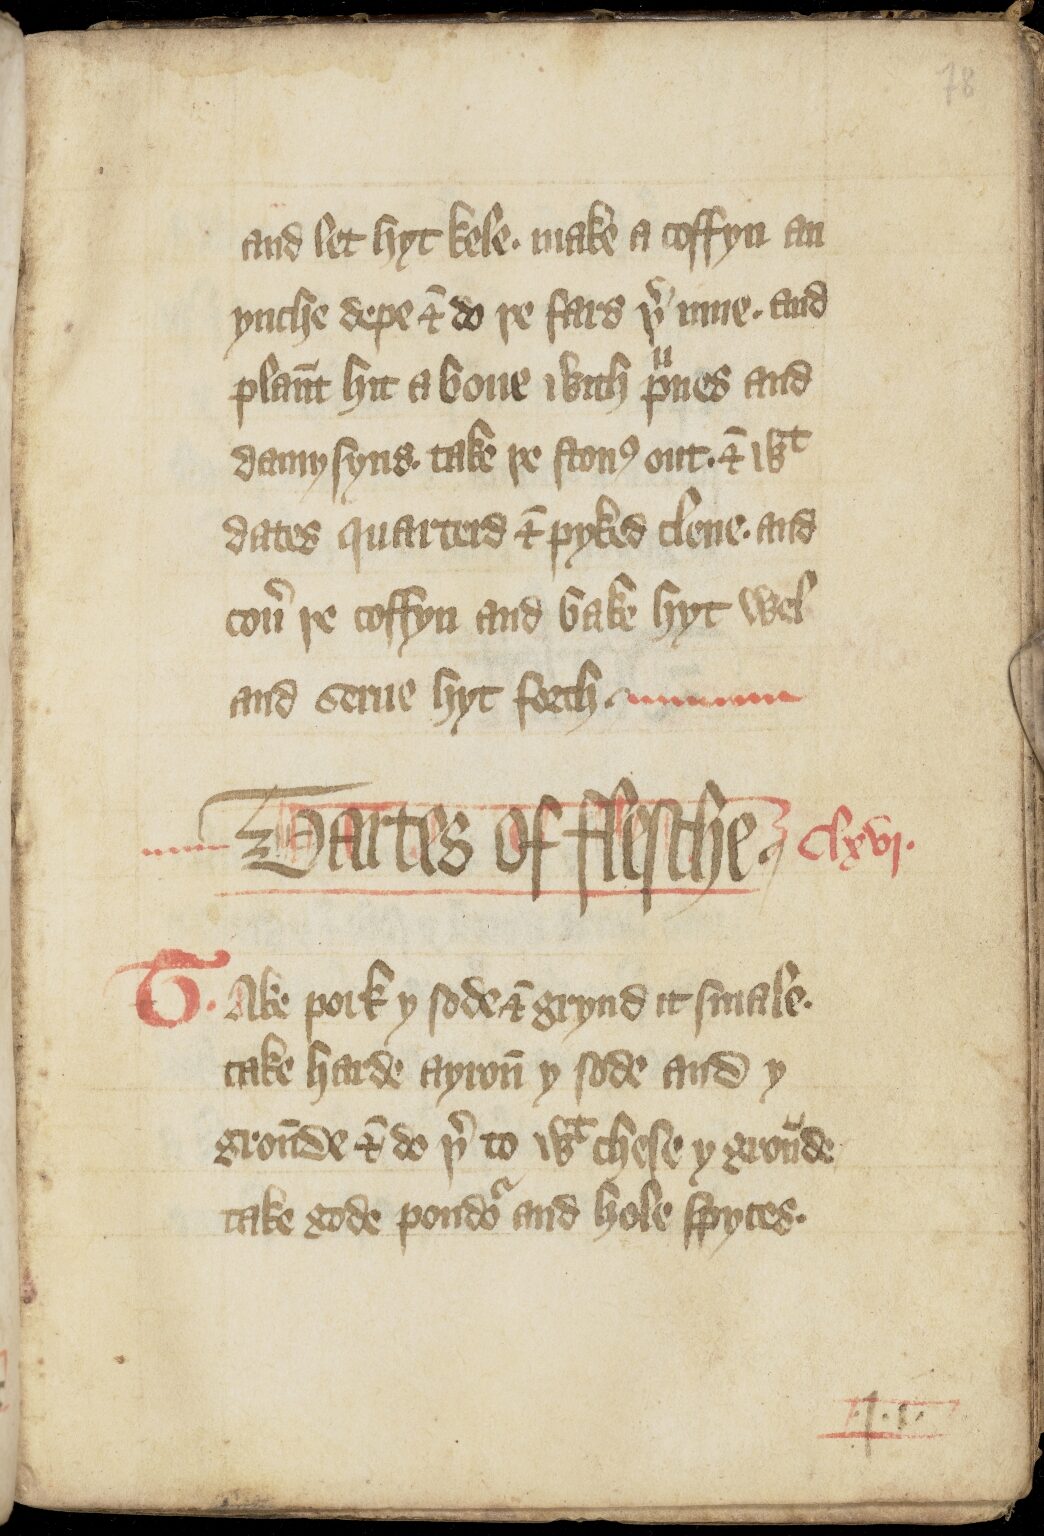 78
and let hyt kele. make a coffyn an
ynche depe & do þe fars þ̾ inne. and
plan̄t hit a boue with pͧnes and
damysyns. take þe stonꝰ out. & wᵗ
dates quarterd & pyked clene. and
cou̾ þe coffyn and bake hyt wel
and serue hyt forth.
Tartes of flesche. clxvj.
T.Ake pork y sode & grynd it smale.
take harde ayron̄ y sode and y
groūde & do þ̾ to wᵗ chese y grounde
take gode poudoͬ and hole spytes.